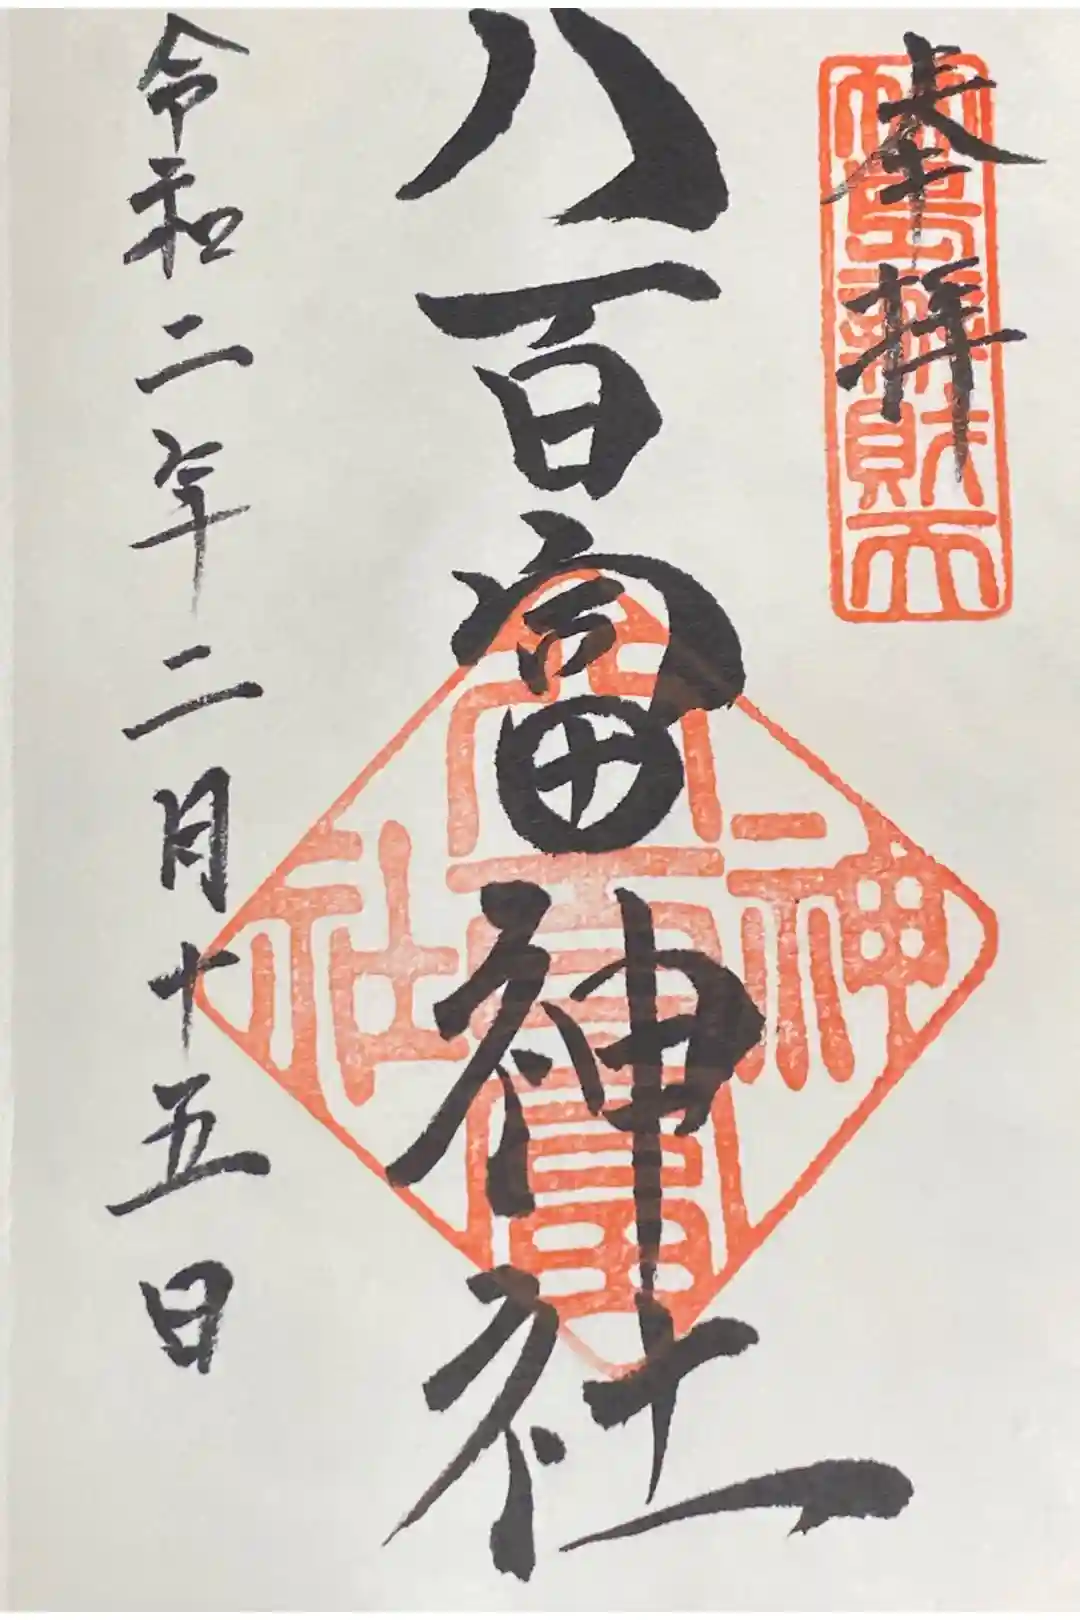 奉拝
竹島辨財天
八百富神社
八百富
神
社
令和二年二月十五日